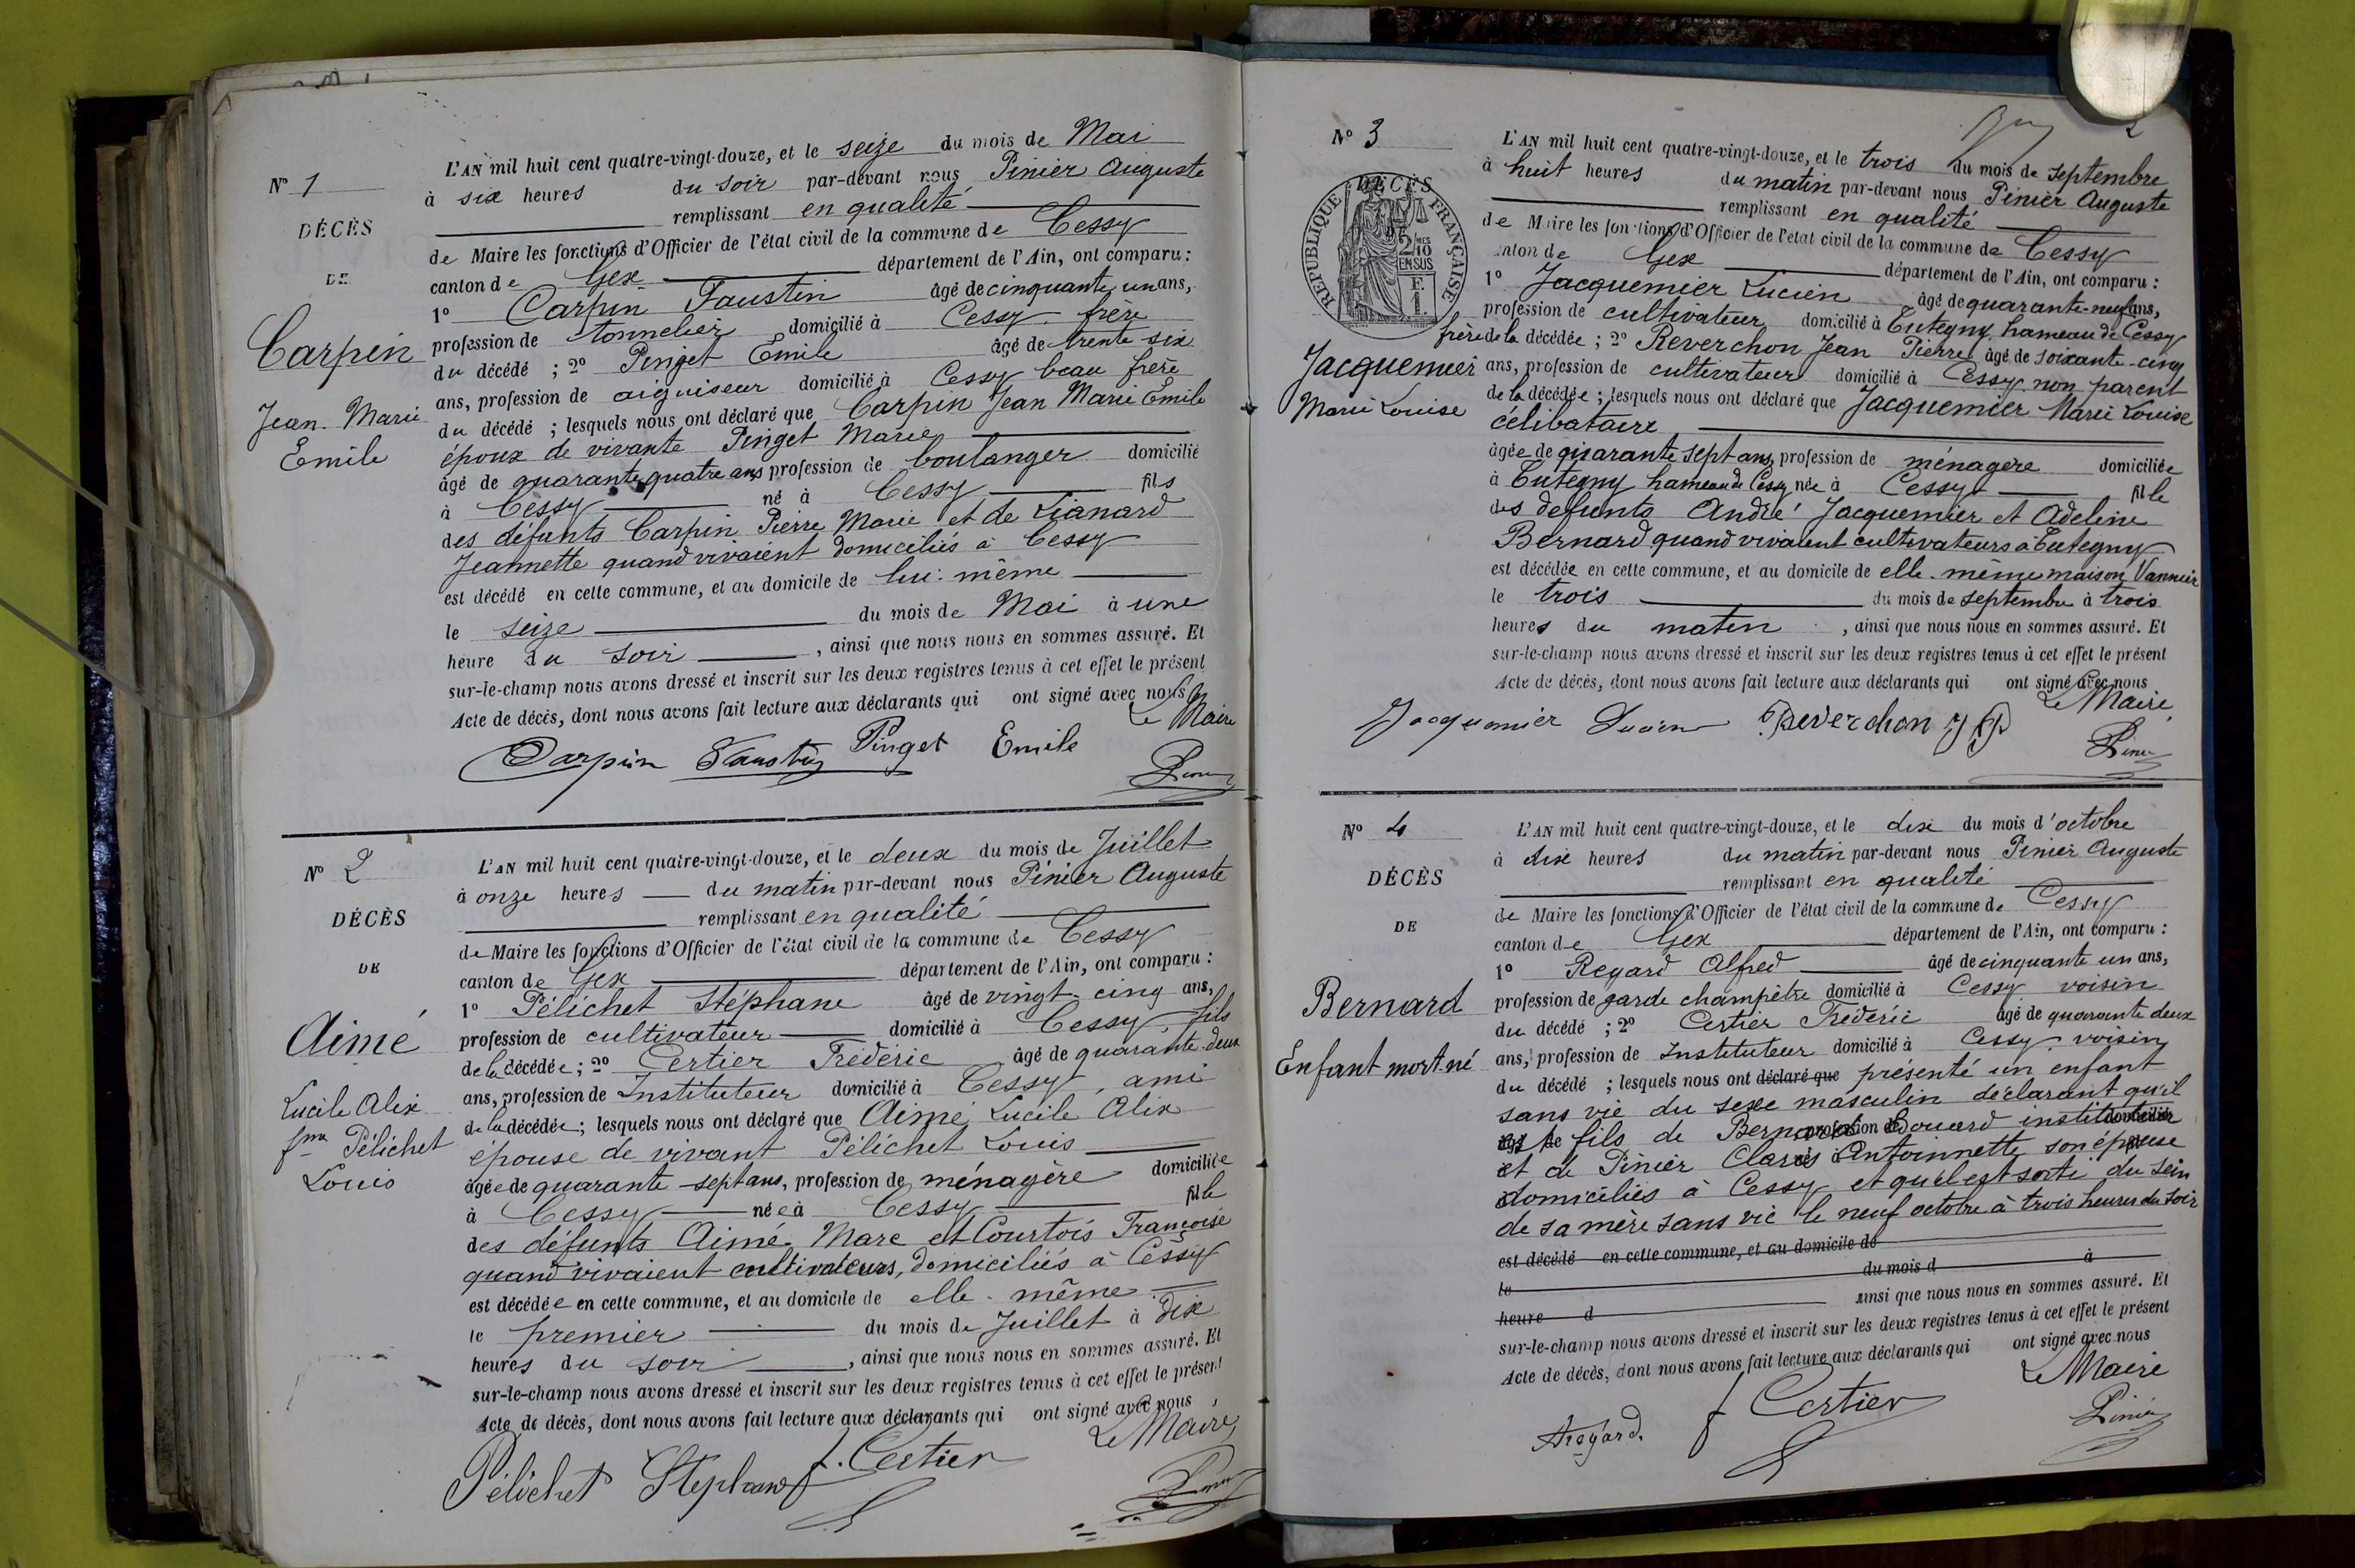 N° 1
DÉCÈS
DE
Carpin
Jean Marie
Emile
L'AN mil huit cent quatre-vingt-douze, et le seize du mois de Mai
à six heures du soir par-devant nous Pinier Auguste
remplissant en qualité
de Maire les fonctions d'Officier de l'état civil de la commune de Cessy
canton de Gex département de l'Ain, ont comparu :
1° Carpin Faustin âgé de cinquante un ans,
profession de tonnelier domicilié à Cessy frère
du décédé ; 2° Pinget Emile âgé de trente six
ans, profession de aiguiseur domicilié à Cessy beau frère
du décédé ; lesquels nous ont déclaré que Carpin Jean Marie Emile
époux de vivante Pinget Marie
âgé de quarante quatre ans profession de boulanger domicilié
à Cessy né à Cessy fils
des défunts Carpin Pierre Marie et de Lianard
Jeannette quand vivaient domiciliés à Cessy
est décédé en cette commune, et au domicile de lui-même
le seize du mois de Mai à une
heure du soir, ainsi que nous nous en sommes assuré. Et
sur-le-champ nous avons dressé et inscrit sur les deux registres tenus à cet effet le présent
Acte de décès, dont nous avons fait lecture aux déclarants qui ont signé avec nous
Le Maire
Carpin Faustin Pinget Emile
Pinier
N° 2
DÉCÈS
DE
Aimé
Lucile Alix
fme Pélichet
Louis
L'AN mil huit cent quatre-vingt-douze, et le deux du mois de Juillet
à onze heures du matin par-devant nous Pinier Auguste
remplissant en qualité
de Maire les fonctions d'Officier de l'état civil de la commune de Cessy
canton de Gex département de l'Ain, ont comparu :
1° Pélichet Stéphane âgé de vingt-cinq ans,
profession de cultivateur domicilié à Cessy, fils
de la décédée ; 2° Certier Fréderic âgé de quarante-deux
ans, profession de Instituteur domicilié à Cessy, ami
de la décédée ; lesquels nous ont déclaré que Aimé Lucile Alix
épouse de vivant Pélichet Louis
âgée de quarante-sept ans, profession de ménagère domiciliée
à Cessy née à Cessy fille
des défunts Aimé Marc et Courtois Françoise
quand vivaient cultivateurs, domiciliés à Cessy
est décédée en cette commune, et au domicile de elle-même
le premier du mois de Juillet à dix
heures du soir, ainsi que nous nous en sommes assuré. Et
sur-le-champ nous avons dressé et inscrit sur les deux registres tenus à cet effet le présent
Acte de décès, dont nous avons fait lecture aux déclarants qui ont signé avec nous
Le Maire
Pélichet Stephane f. Certier
Pinier
2
N° 3
RÉPUBLIQUE FRANÇAISE
DÉCÈS
2/10 EN SUS
F. 1.
Jacquemier
Marie Louise
L'AN mil huit cent quatre-vingt-douze, et le trois du mois de septembre
à huit heures du matin par-devant nous Pinier Auguste
remplissant en qualité
de Maire les fonctions d'Officier de l'état civil de la commune de Cessy
canton de Gex département de l'Ain, ont comparu :
1° Jacquemier Lucien âgé de quarante-neuf ans,
profession de cultivateur domicilié à Tutegny, hameau de Cessy
frère de la décédée ; 2° Reverchon Jean Pierre âgé de soixante-cinq
ans, profession de cultivateur domicilié à Cessy non parent
de la décédée ; lesquels nous ont déclaré que Jacquemier Marie Louise
célibataire
âgée de quarante sept ans, profession de ménagère domiciliée
à Tutegny hameau de Cessy née à Cessy fille
des défunts André Jacquemier et Adeline
Bernard quand vivaient cultivateurs à Tutegny
est décédée en cette commune, et au domicile de elle-même maison Vannier
le trois du mois de septembre à trois
heures du matin, ainsi que nous nous en sommes assuré. Et
sur-le-champ nous avons dressé et inscrit sur les deux registres tenus à cet effet le présent
Acte de décès, dont nous avons fait lecture aux déclarants qui ont signé avec nous
Le Maire
Jacquemier Lucien Reverchon J P
Pinier
N° 4
DÉCÈS
DE
Bernard
Enfant mort-né
L'AN mil huit cent quatre-vingt-douze, et le dix du mois d'octobre
à dix heures du matin par-devant nous Pinier Auguste
remplissant en qualité
de Maire les fonctions d'Officier de l'état civil de la commune de Cessy
canton de Gex département de l'Ain, ont comparu :
1° Regard Alfred âgé de cinquante un ans,
profession de garde champêtre domicilié à Cessy voisin
du décédé ; 2° Certier Fréderic âgé de quarante deux
ans, profession de Instituteur domicilié à Cessy voisin
du décédé ; lesquels nous ont déclaré que présenté un enfant
sans vie du sexe masculin déclarant qu'il
est le fils de Bernard Edouard instituteur
et de Pinier Clarès Antoinnette son épouse
domiciliés à Cessy et qu'il est sorti du sein
de sa mère sans vie le neuf octobre à trois heures du soir
est décédé en cette commune, et au domicile de
le du mois d à
heure d ainsi que nous nous en sommes assuré. Et
sur-le-champ nous avons dressé et inscrit sur les deux registres tenus à cet effet le présent
Acte de décès, dont nous avons fait lecture aux déclarants qui ont signé avec nous
Le Maire
A Regard. f Certier
Pinier